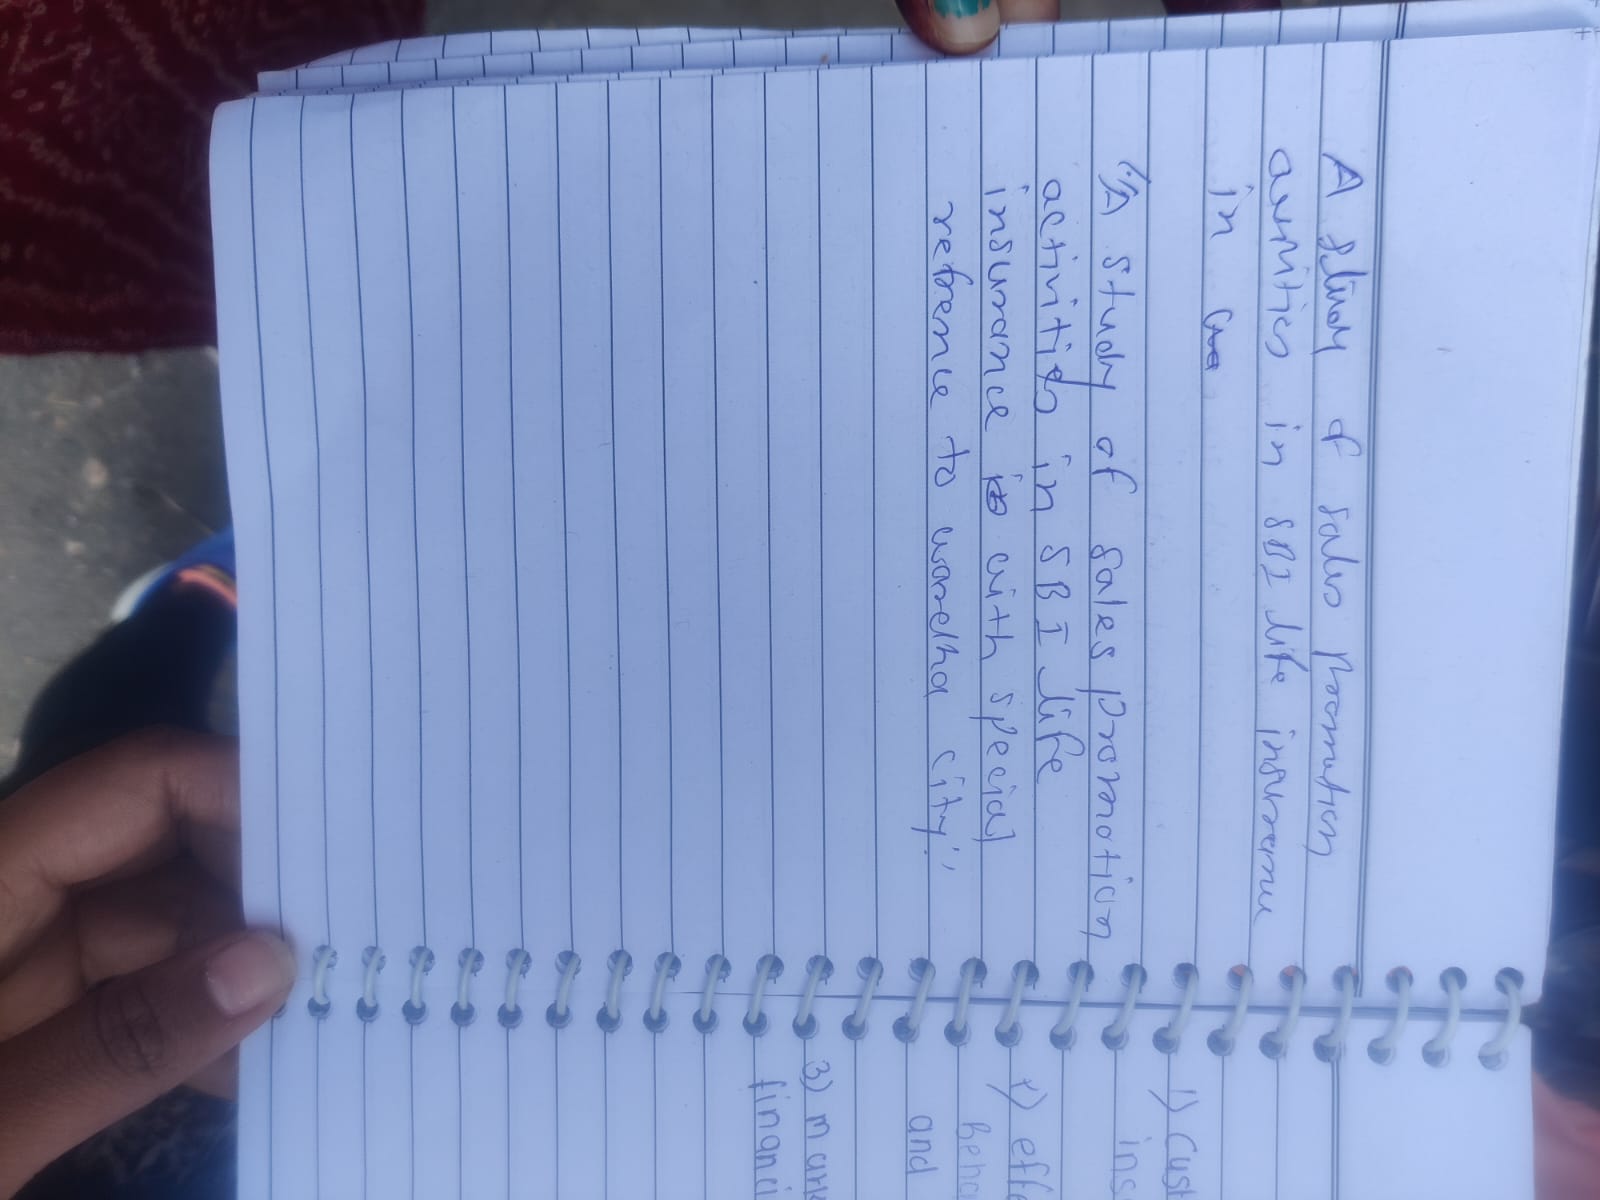 A study of sales promotion
activities in SBI life insurance
in
"A study of sales promotion
activities in SBI life
insurance with special
reference to wardha city."
1) Cust
ins
2) effe
beha
and
3) mark
financi